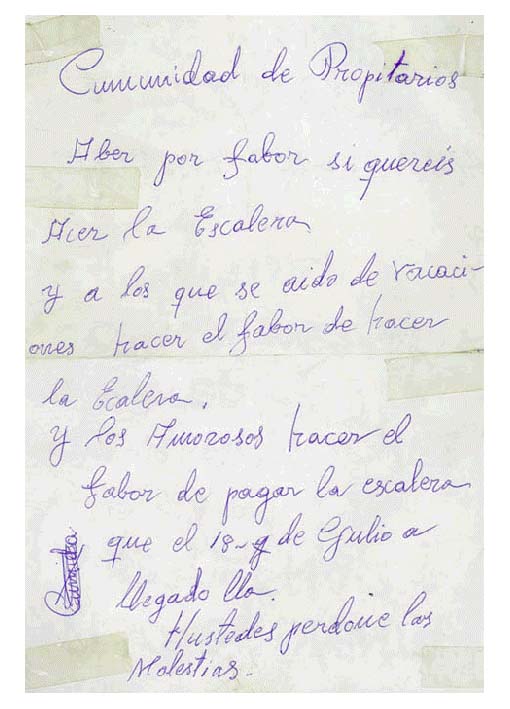 Cumunidad de Propitarios
Aber por fabor si quereis
Acer la Escalera
y a los que se aido de vacaci-
ones hacer el fabor de hacer
la Ecalera.
y los Amorosos hacer el
fabor de pagar la escalera
que el 18-y de Gulio a
llegado lla.
Hustedes perdone las
Molestias.